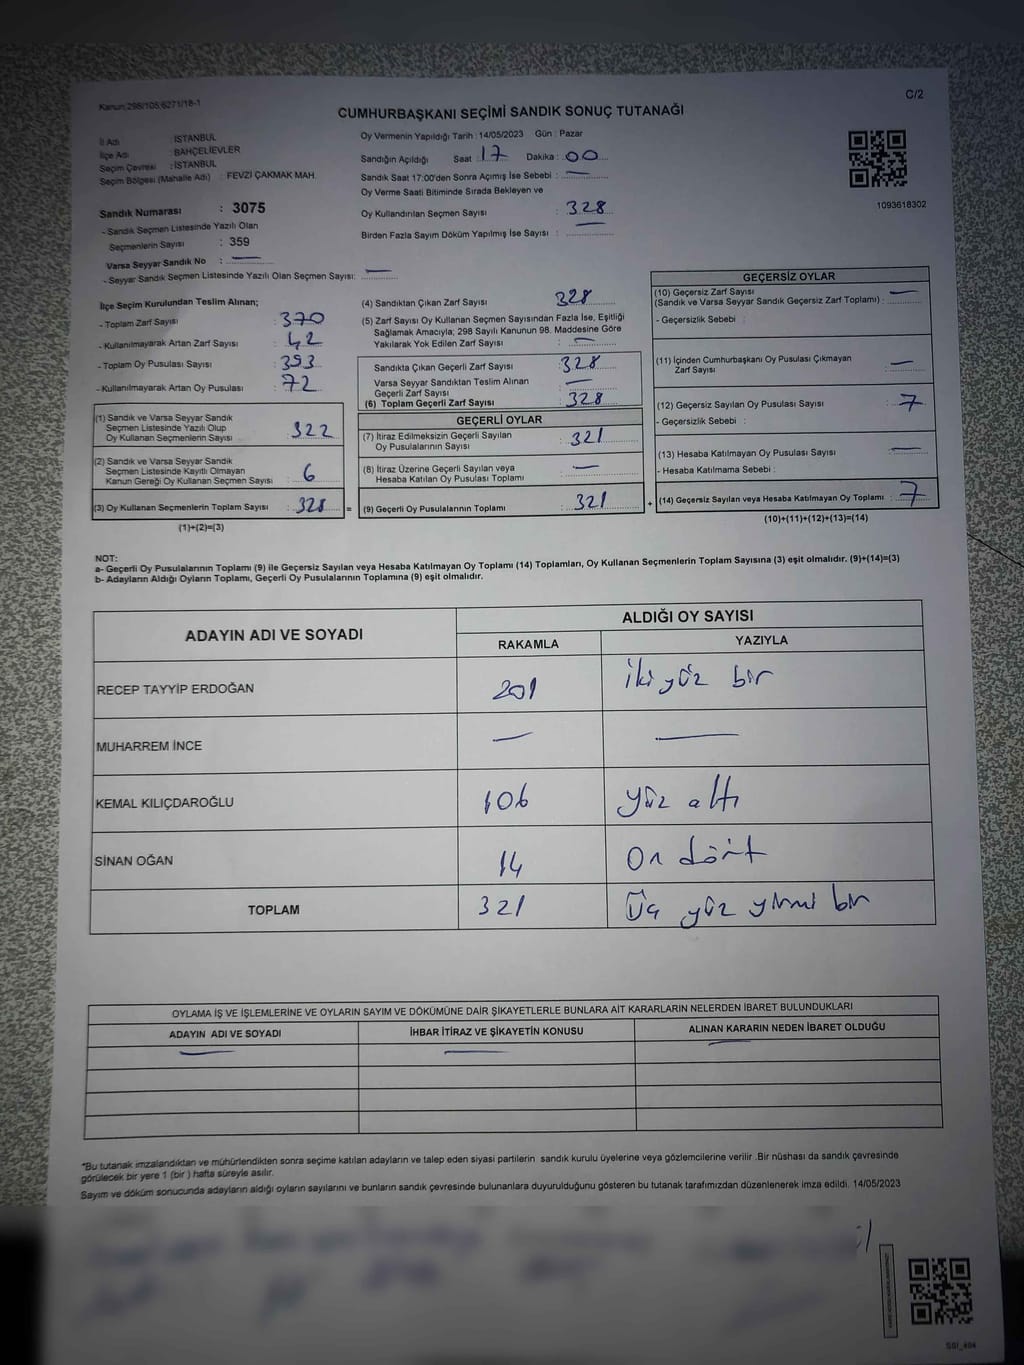 Kanun:298/105;6271/18-1
C/2
CUMHURBAŞKANI SEÇİMİ SANDIK SONUÇ TUTANAĞI
İl Adı : İSTANBUL
İlçe Adı : BAHÇELİEVLER
Seçim Çevresi : İSTANBUL
Seçim Bölgesi (Mahalle Adı) : FEVZİ ÇAKMAK MAH.
Sandık Numarası : 3075
- Sandık Seçmen Listesinde Yazılı Olan
Seçmenlerin Sayısı : 359
Varsa Seyyar Sandık No : —
- Seyyar Sandık Seçmen Listesinde Yazılı Olan Seçmen Sayısı: —
Oy Vermenin Yapıldığı Tarih : 14/05/2023 Gün : Pazar
Sandığın Açıldığı Saat : 17 Dakika : 00
Sandık Saat 17:00'den Sonra Açımış İse Sebebi : —
Oy Verme Saati Bitiminde Sırada Bekleyen ve
Oy Kullandırılan Seçmen Sayısı : 328
Birden Fazla Sayım Döküm Yapılmış İse Sayısı : —
1093618302
İlçe Seçim Kurulundan Teslim Alınan;
- Toplam Zarf Sayısı : 370
- Kullanılmayarak Artan Zarf Sayısı : 42
- Toplam Oy Pusulası Sayısı : 393
- Kullanılmayarak Artan Oy Pusulası : 72
(1) Sandık ve Varsa Seyyar Sandık
Seçmen Listesinde Yazılı Olup
Oy Kullanan Seçmenlerin Sayısı : 322
(2) Sandık ve Varsa Seyyar Sandık
Seçmen Listesinde Kayıtlı Olmayan
Kanun Gereği Oy Kullanan Seçmen Sayısı : 6
(3) Oy Kullanan Seçmenlerin Toplam Sayısı : 328 =
(1)+(2)=(3)
(4) Sandıktan Çıkan Zarf Sayısı : 328
(5) Zarf Sayısı Oy Kullanan Seçmen Sayısından Fazla İse, Eşitliği
Sağlamak Amacıyla; 298 Sayılı Kanunun 98. Maddesine Göre
Yakılarak Yok Edilen Zarf Sayısı : —
Sandıkta Çıkan Geçerli Zarf Sayısı : 328
Varsa Seyyar Sandıktan Teslim Alınan
Geçerli Zarf Sayısı : —
(6) Toplam Geçerli Zarf Sayısı : 328
GEÇERLİ OYLAR
(7) İtiraz Edilmeksizin Geçerli Sayılan
Oy Pusulalarının Sayısı : 321
(8) İtiraz Üzerine Geçerli Sayılan veya
Hesaba Katılan Oy Pusulası Toplamı : —
(9) Geçerli Oy Pusulalarının Toplamı : 321 +
GEÇERSİZ OYLAR
(10) Geçersiz Zarf Sayısı
(Sandık ve Varsa Seyyar Sandık Geçersiz Zarf Toplamı) : —
- Geçersizlik Sebebi :
(11) İçinden Cumhurbaşkanı Oy Pusulası Çıkmayan
Zarf Sayısı : —
(12) Geçersiz Sayılan Oy Pusulası Sayısı : 7
- Geçersizlik Sebebi :
(13) Hesaba Katılmayan Oy Pusulası Sayısı : —
- Hesaba Katılmama Sebebi :
(14) Geçersiz Sayılan veya Hesaba Katılmayan Oy Toplamı : 7
(10)+(11)+(12)+(13)=(14)
NOT:
a- Geçerli Oy Pusulalarının Toplamı (9) ile Geçersiz Sayılan veya Hesaba Katılmayan Oy Toplamı (14) Toplamları, Oy Kullanan Seçmenlerin Toplam Sayısına (3) eşit olmalıdır. (9)+(14)=(3)
b- Adayların Aldığı Oyların Toplamı, Geçerli Oy Pusulalarının Toplamına (9) eşit olmalıdır.
ADAYIN ADI VE SOYADI
ALDIĞI OY SAYISI
RAKAMLA YAZIYLA
RECEP TAYYİP ERDOĞAN 201 iki yüz bir
MUHARREM İNCE — —
KEMAL KILIÇDAROĞLU 106 yüz altı
SİNAN OĞAN 14 On dört
TOPLAM 321 Üç yüz yirmi bir
OYLAMA İŞ VE İŞLEMLERİNE VE OYLARIN SAYIM VE DÖKÜMÜNE DAİR ŞİKAYETLERLE BUNLARA AİT KARARLARIN NELERDEN İBARET BULUNDUKLARI
ADAYIN ADI VE SOYADI İHBAR İTİRAZ VE ŞİKAYETİN KONUSU ALINAN KARARIN NEDEN İBARET OLDUĞU
— — —
*Bu tutanak imzalandıktan ve mühürlendikten sonra seçime katılan adayların ve talep eden siyasi partilerin sandık kurulu üyelerine veya gözlemcilerine verilir .Bir nüshası da sandık çevresinde
görülecek bir yere 1 (bir ) hafta süreyle asılır.
Sayım ve döküm sonucunda adayların aldığı oyların sayılarını ve bunların sandık çevresinde bulunanlara duyurulduğunu gösteren bu tutanak tarafımızdan düzenlenerek imza edildi. 14/05/2023